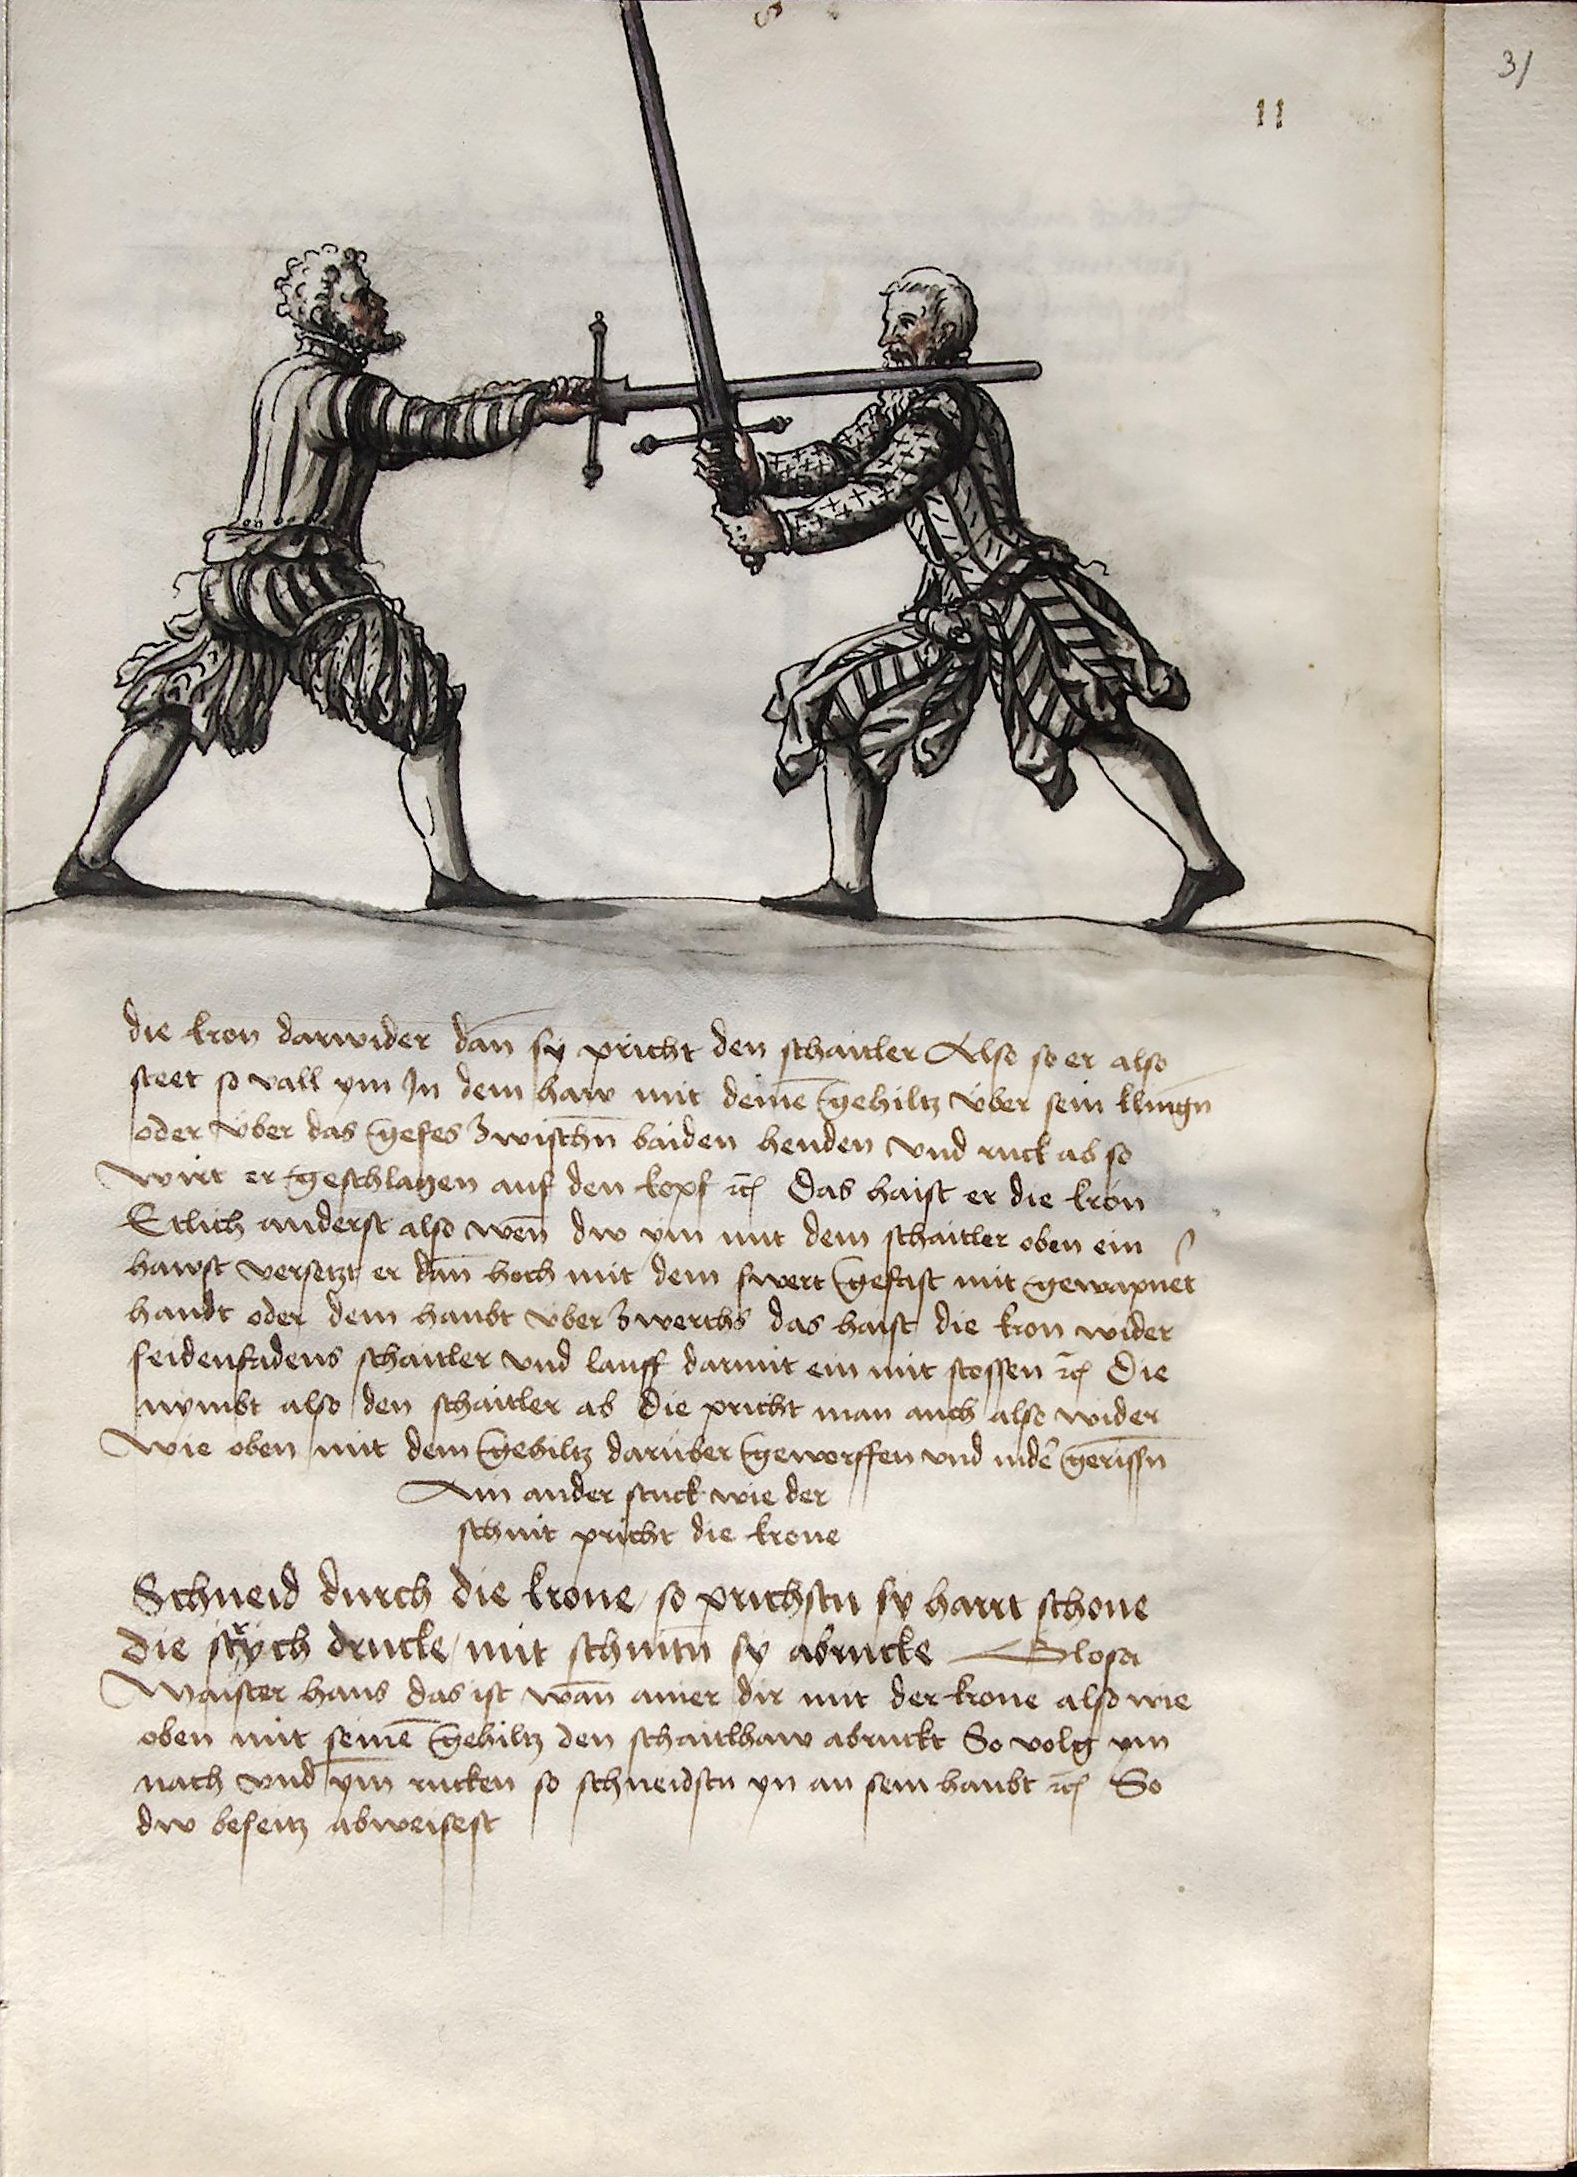 31
11
die kron darwider dan̄ sy pricht den schaitler Also so er also
steet so vall ym Jn dem haw mit deinē gehiltz über sein klingn̄
oder über das gefes zwischn̄ baiden henden vnd ruck ab so
wirt er geschlagen auf den kopf rc̄ Das haist er die kron
Etlich anderst also wen̄ dw ym mit dem schaitler oben ein
hawst versetzt er dan̄ hoch mit dem swert gefast mit gewapnet
handt oder dem haubt über zwerchs das haist die kron wider
seidenfadens schaitler vnd lauff darmit ein mit stossen rc̄ Die
nymbt also den schaitler ab Die pricht man auch also wider
wie oben mit dem gehiltz darüber geworffen vnd nidē gerissn̄
Ain ander stuck wie der
schnit pricht die krone
Schneid durch die krone / so prichstu sy harrt schone
die strÿch drucke / mit schnitn̄ sy abrucke Glosa
Maister hans das ist wan̄ ainer dir mit der krone also wie
oben mit seinē gehiltz den schaitlhaw abruckt So volg ym
nach vnd ym rucken so schneidstu yn an sein haubt rc̄ So
dw beseitz abweisest